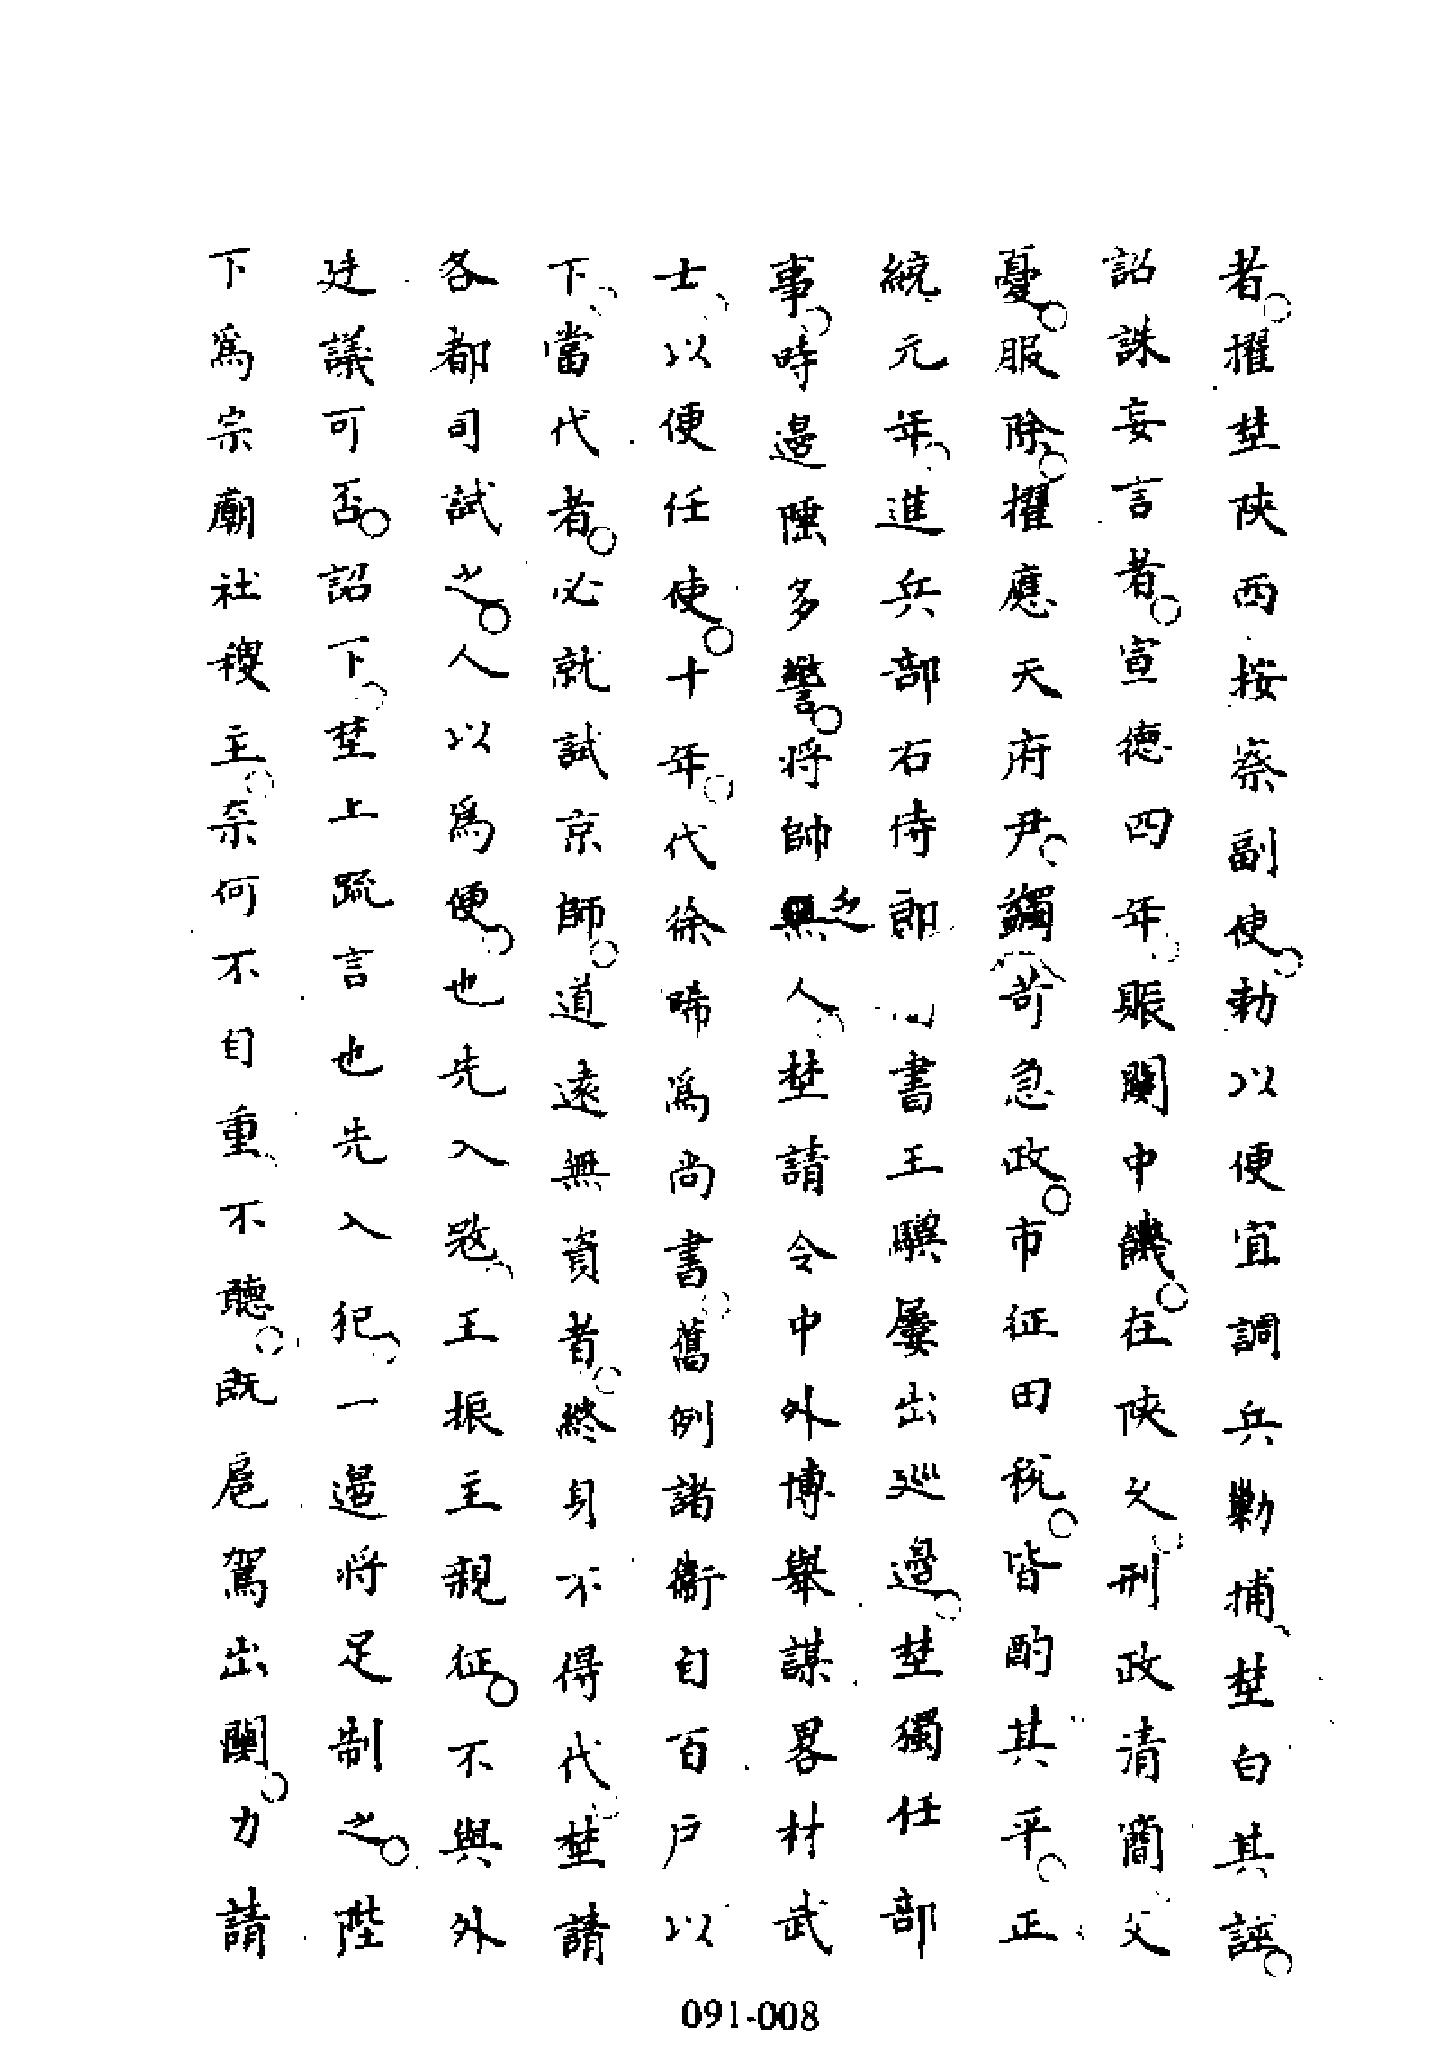 者擢埜陝西按察副使勅以便宜調兵勦捕埜白其誣
詔誅妄言者宣德四年賑關中饑在陝久刑政清簡父
憂服除擢應天府尹蠲苛急政市征田稅皆酌其平正
統元年進兵部右侍郎 書王驥屢出巡邊埜獨任部
事時邊陲多警將帥乏人埜請令中外博舉謀畧材武
士以便任使十年代徐晞為尚書舊例諸衛自百戶以
下當代者必就試京師道遠無資者終身不得代埜請
各都司試之人以為便也先入寇王振主親征不與外
廷議可否詔下埜上疏言也先入犯一邊將足制之陛
下為宗廟社稷主柰何不自重不聽既扈駕出關力請
091-008